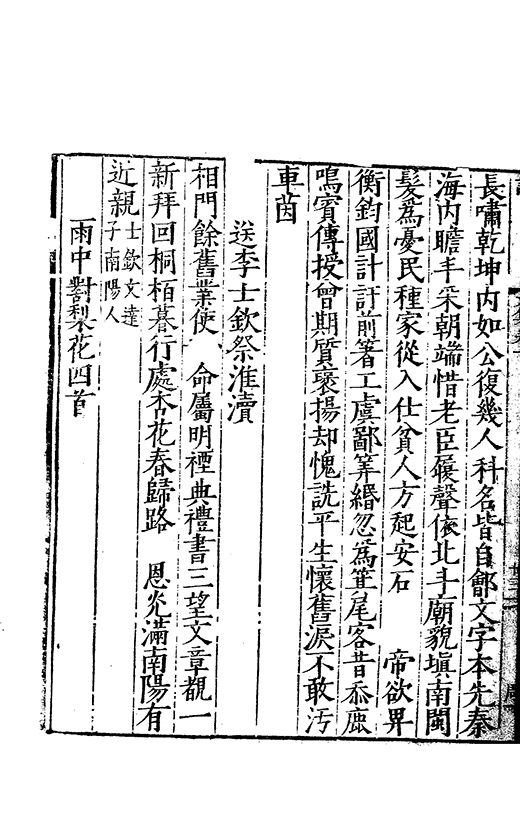 長嘯乾坤内如公復幾人科名皆自鄶文字本先秦
海内瞻丰采朝端惜老臣履聲依北斗廟貌塡南閩
髮爲憂民種家從入仕貧人方起安石　帝欲畀
衡鈞國計訏前箸工虞鄙筭緡忽爲箕尾客昔忝鹿
鳴賓傳授曾期質褒揚却愧詵平生懷舊淚不敢汚
車茵
送李士欽祭淮瀆
相門餘舊業使　命屬明禋典禮書三望文章覯一
新拜回桐栢暮行處杏花春歸路　恩光滿南陽有
近親士欽文達子南陽人
雨中對梨花四首